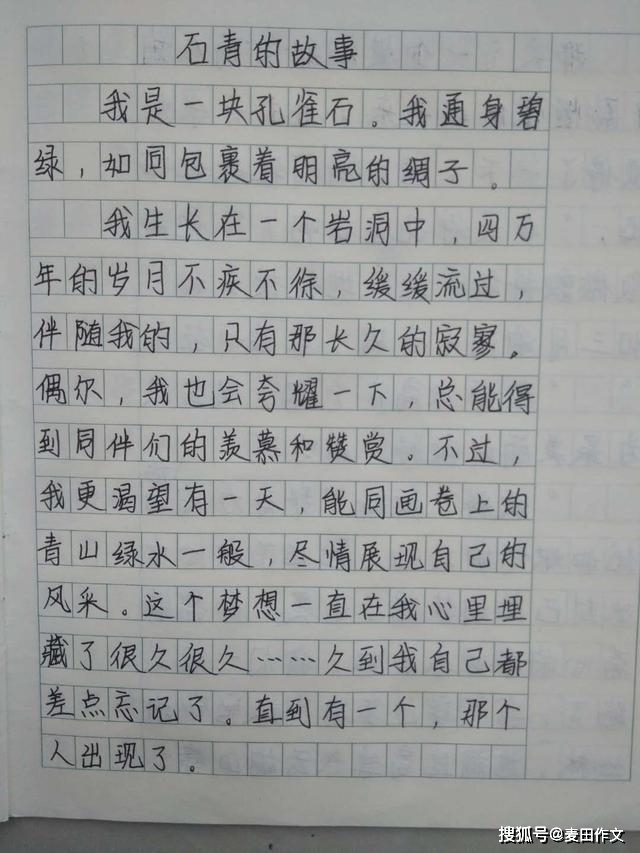 石青的故事
我是一块孔雀石。我通身碧
绿，如同包裹着明亮的绸子。
我生长在一个岩洞中，四万
年的岁月不疾不徐，缓缓流过，
伴随我的，只有那长久的寂寥。
偶尔，我也会夸耀一下，总能得
到同伴们的羡慕和赞赏。不过，
我更渴望有一天，能同画卷上的
青山绿水一般，尽情展现自己的
风采。这个梦想一直在我心里埋
藏了很久很久……久到我自己都
差点忘记了。直到有一个，那个
人出现了。
搜狐号@麦田作文